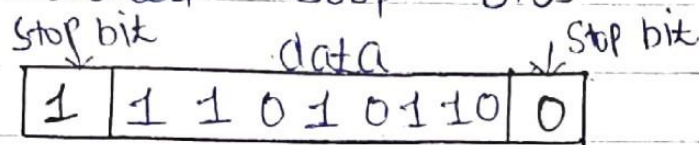 Stop bit data Stop bit
1 1 1 0 1 0 1 1 0 0